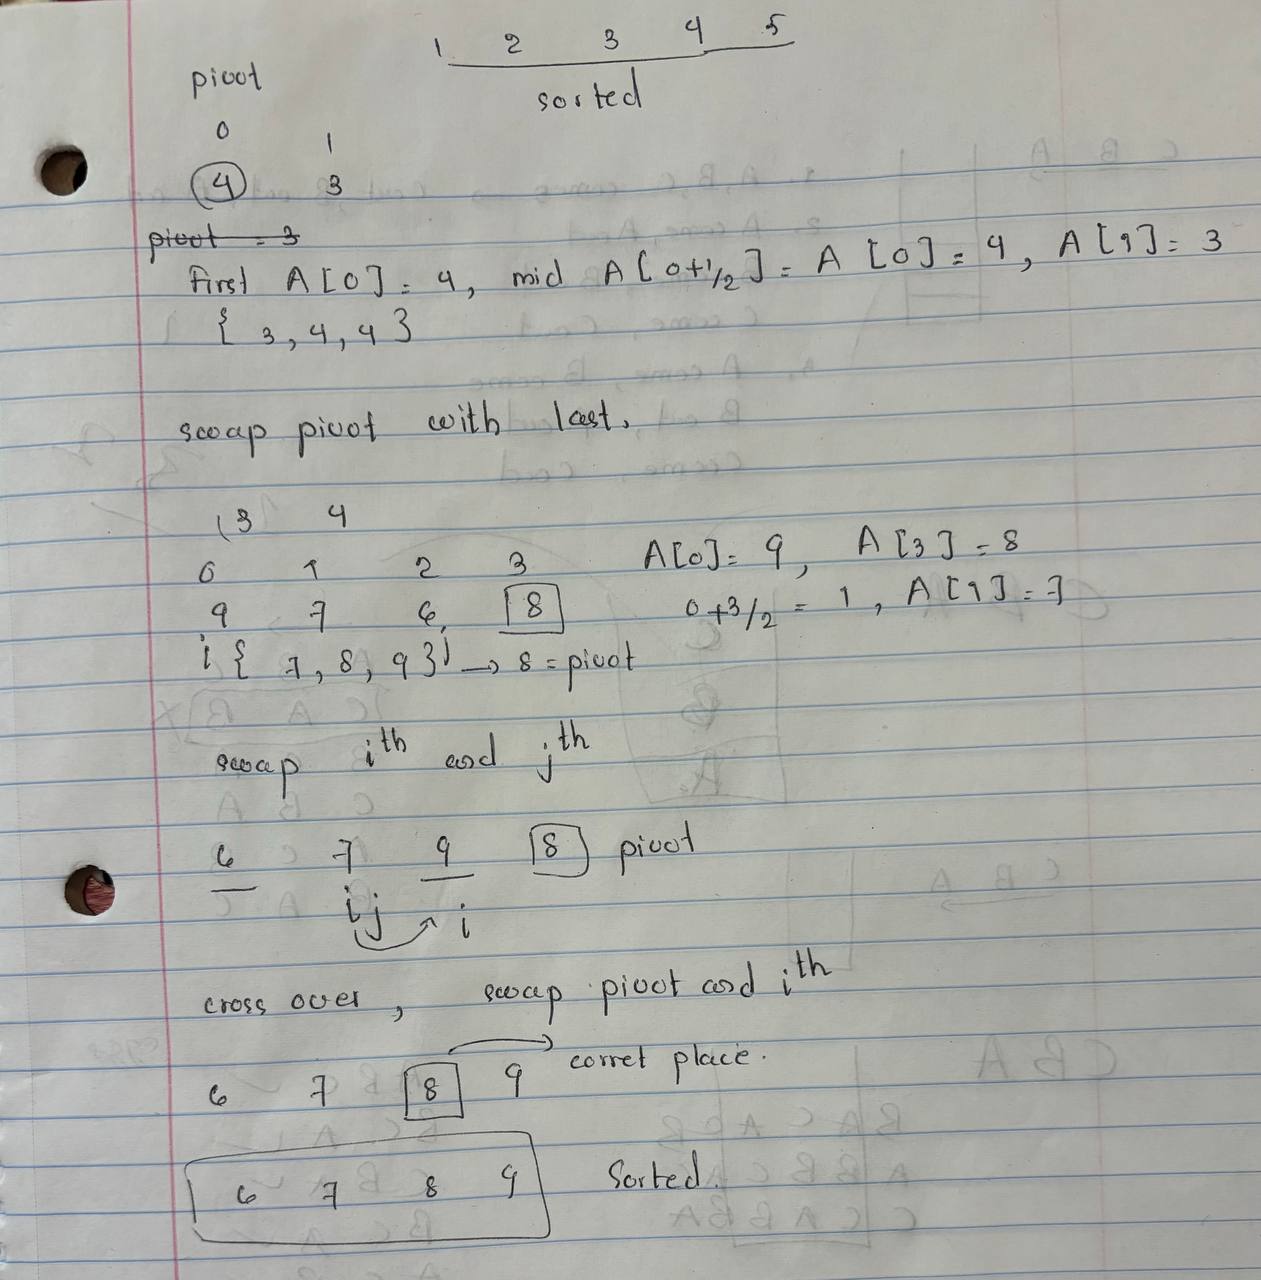 1 2 3 4 5
sorted
pivot
0 1
4 3
pivot = 3
First A[0] = 4, mid A[0+1/2] = A[0] = 4, A[1] = 3
{ 3, 4, 4 }
swap pivot with last.
3 4
0 1 2 3 A[0] = 9, A[3] = 8
9 7 6 8 0+3/2 = 1, A[1] = 7
i { 7, 8, 9 } j → 8 = pivot
swap ith and jth
6 7 9 8 pivot
i j i
cross over, swap pivot and ith
6 7 8 9 corret place.
6 7 8 9 Sorted.